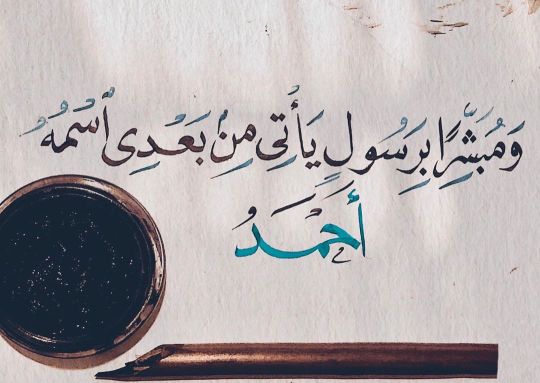 وَمُبَشِّرًا بِرَسُولٍ يَأْتِي مِنْ بَعْدِى ٱسْمُهُ
أَحْمَدُ